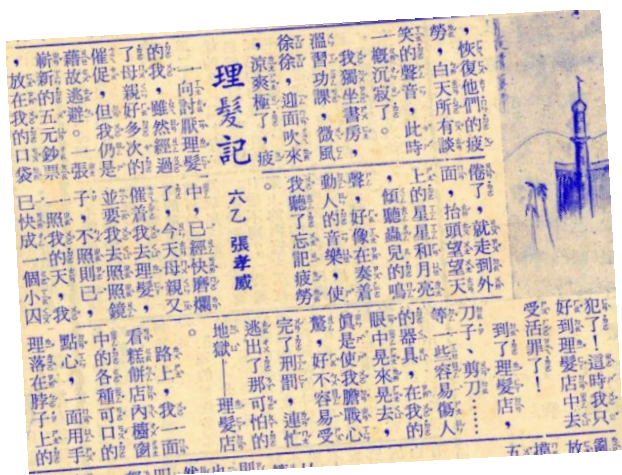 ，恢復他們的疲
勞，白天所有談
笑的聲音，此時
一概沉寂了。
我獨坐書房，
溫習功課，微風
徐徐，迎面吹來
，涼爽極了，疲
倦了，就走到外
面，抬頭望望天
上的星星和月亮
，傾聽蟲兒的鳴
聲，好像在奏着
動人的音樂，使
我聽了忘記疲勞
。
理髮記
六乙 張孝威
一向討厭理髮
的我，雖然經過
了母親好多次的
催促，但我仍是
藉故逃避。一張
嶄新的五元鈔票
，放在我的口袋
中，已經快磨爛
了，今天母親又
催着我去理髮，
並要我去照照鏡
子，不照則已，
一照我的天，我
已快成一個小囚
犯了！這時我只
好到理髮店中去
受活罪了！
到了理髮店，
刀子、剪刀……
等一些容易傷人
的器具，在我的
眼中晃來晃去，
眞是使我膽戰心
驚，好不容易受
完了刑罰，連忙
逃出了那可怕的
地獄——理髮店
。
路上，我一面
看糕餅店內櫥窗
中的各種可口的
點心，一面用手
理落在脖子上的